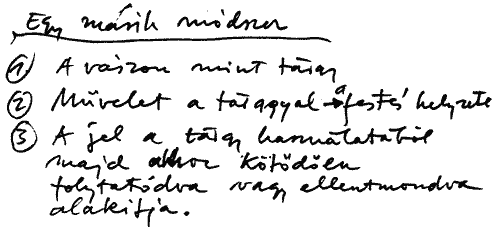 Egy másik módszer
① A vászon mint tárgy
② Művelet a tárggyal a festés helyzete
③ A jel a tárgy használatából
majd ahhoz kötődően
folytatódva vagy ellentmondva
alakítja.